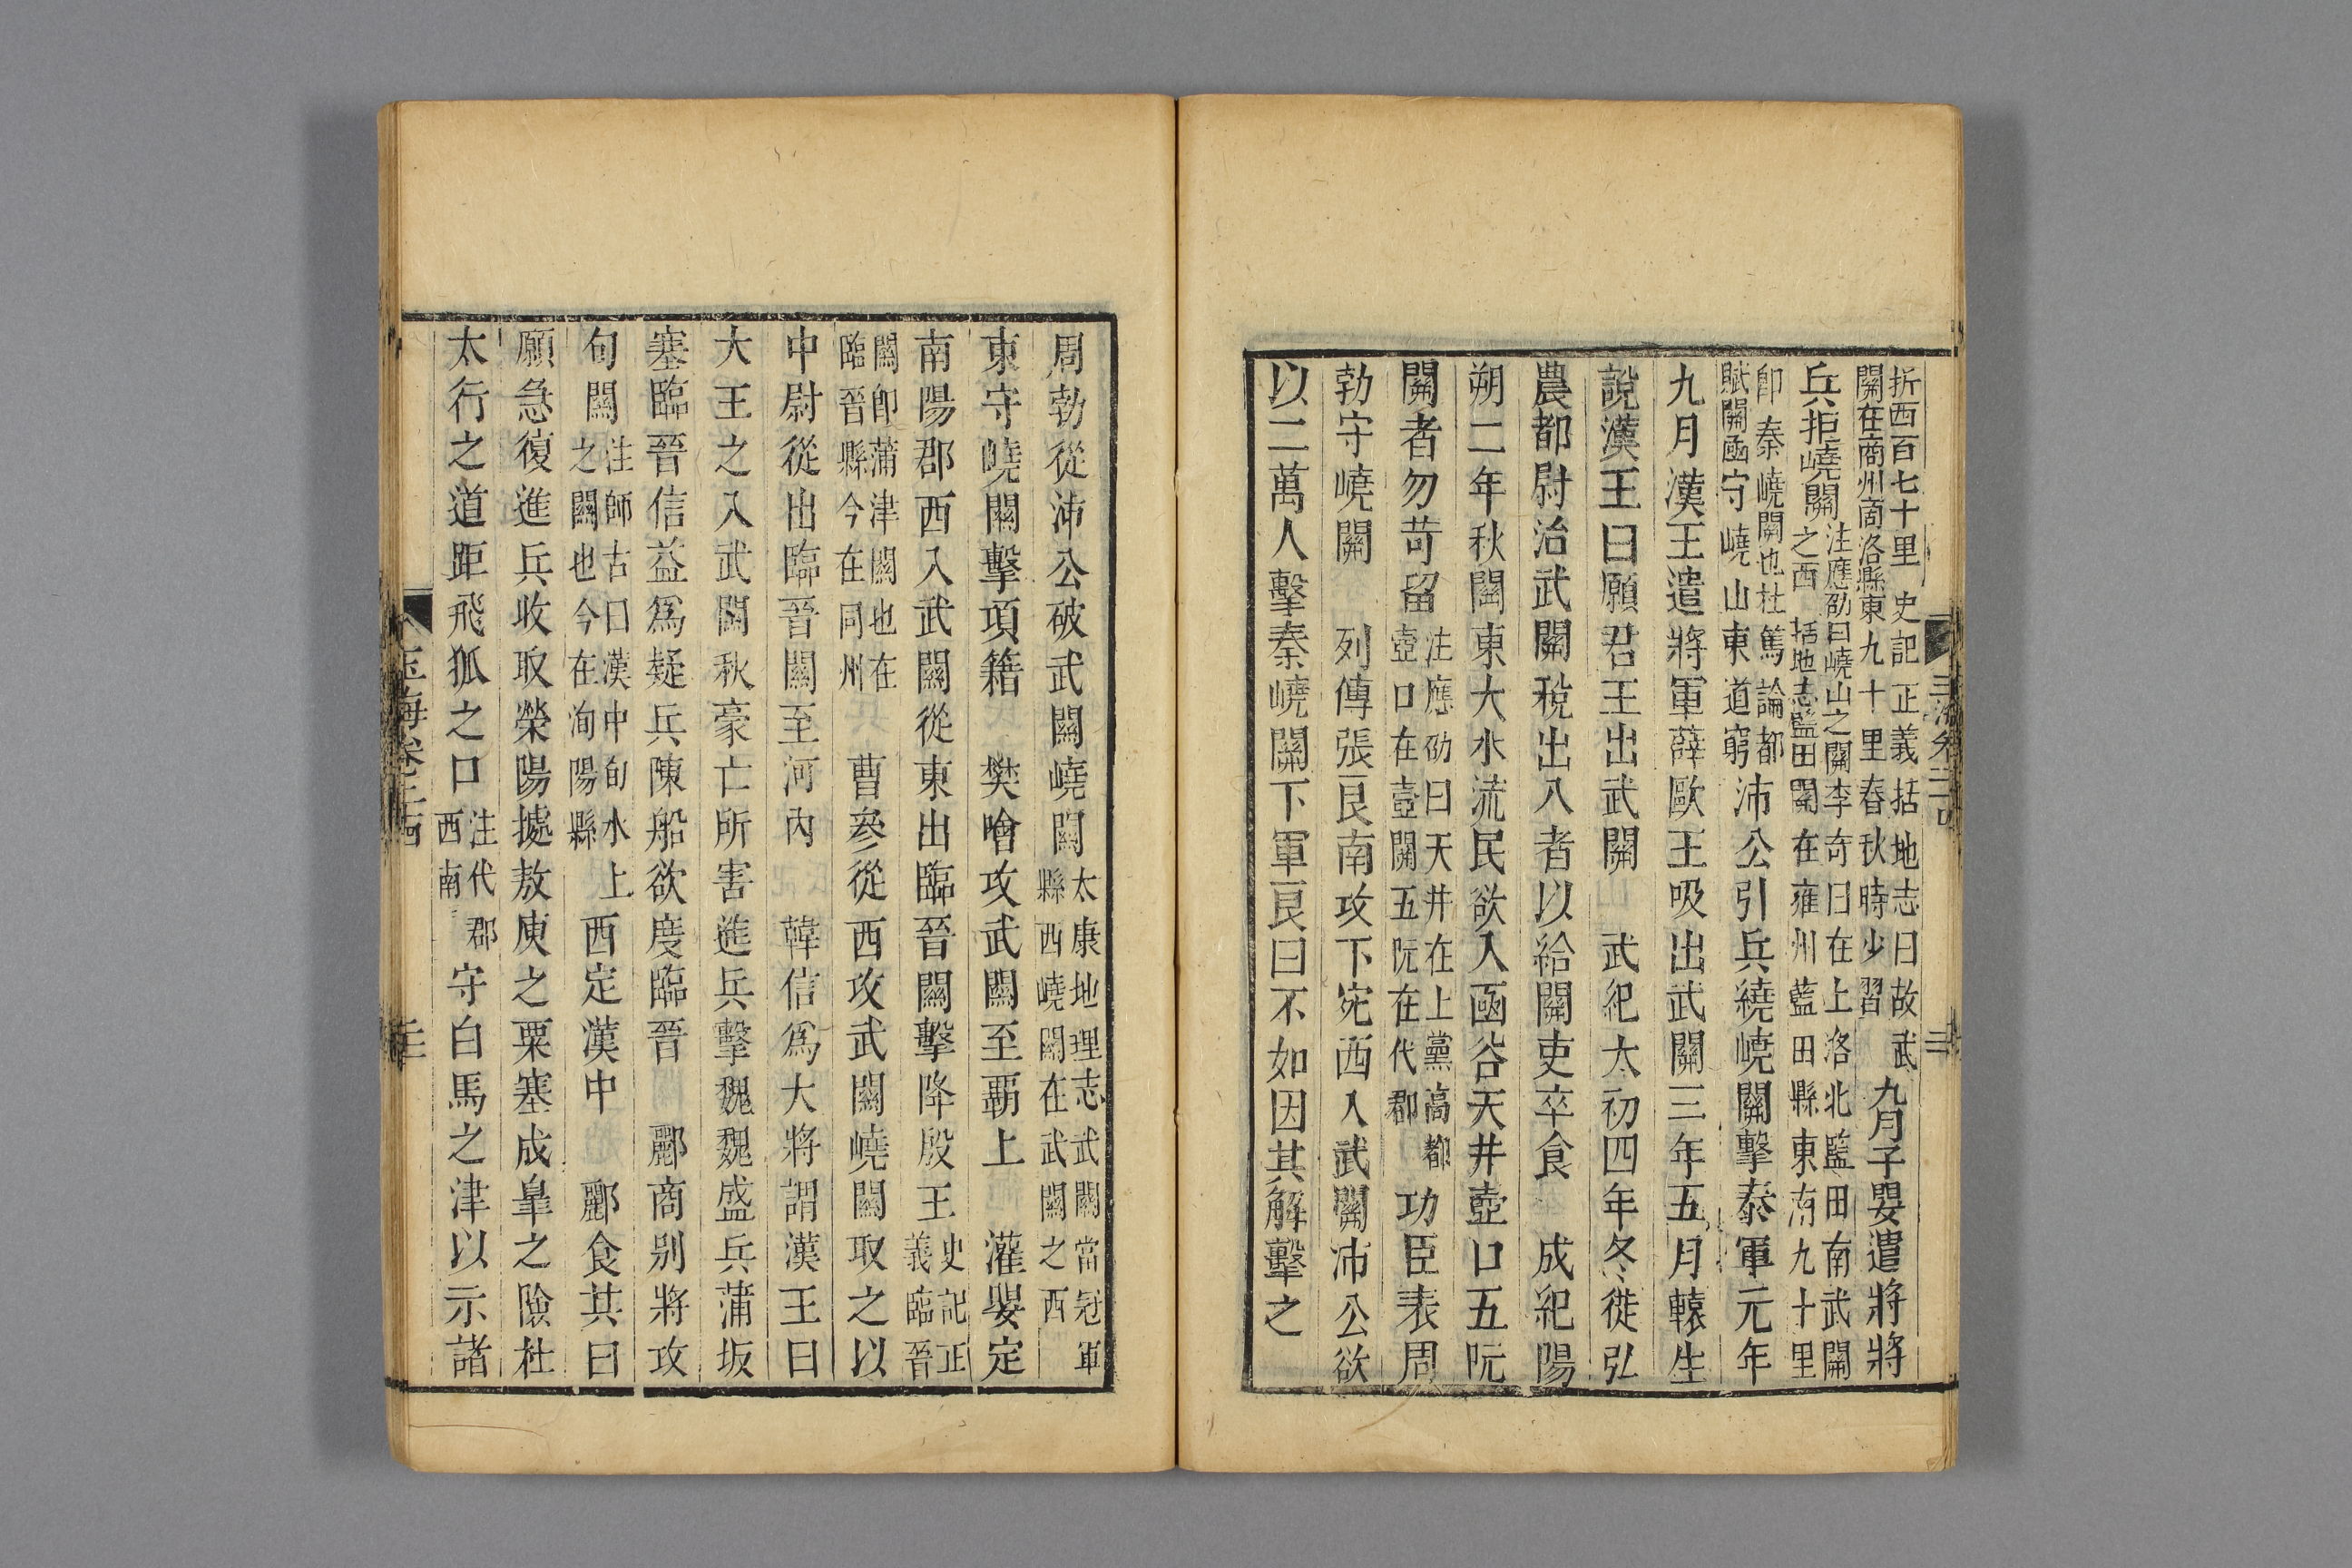 折西百七十里　史記正義括地志曰故武
關在商州商洛縣東九十里春秋時少習
九月子嬰遣將將
兵拒嶢關
注應劭曰嶢山之關李奇曰在上洛北藍田南武關
之西　括地志藍田關在雍州藍田縣東南九十里
卽秦嶢關也杜篤論都
賦關函守嶢山東道窮
沛公引兵繞嶢關擊秦軍元年
九月漢王遣將軍薛歐王吸出武關三年五月轅生
說漢王曰願君王出武關　武紀太初四年冬徙弘
農都尉治武關稅出入者以給關吏卒食　成紀陽
朔二年秋關東大水流民欲入函谷天井壺口五阮
關者勿苛留
注應劭曰天井在上黨高都
壺口在壺關五阮在代郡
功臣表周
勃守嶢關　列傳張良南攻下宛西入武關沛公欲
以二萬人擊秦嶢關下軍良曰不如因其解擊之
周勃從沛公破武關嶢關
太康地理志武關當冠軍
縣西嶢關在武關之西
東守嶢關擊項籍　樊噲攻武關至霸上　灌嬰定
南陽郡西入武關從東出臨晉關擊降殷王
史記正
義臨晉
關卽蒲津關也在
臨晉縣今在同州
曹參從西攻武關嶢關取之以
中尉從出臨晉關至河內　韓信爲大將謂漢王曰
大王之入武關秋豪亡所害進兵擊魏魏盛兵蒲坂
塞臨晉信益爲疑兵陳船欲度臨晉　酈商别將攻
旬關
注師古曰漢中旬水上
之關也今在洵陽縣
西定漢中　酈食其曰
願急復進兵收取榮陽據敖庾之粟塞成皐之險杜
太行之道距飛狐之口
注代郡
西南
守白馬之津以示諸
玉海卷二十四